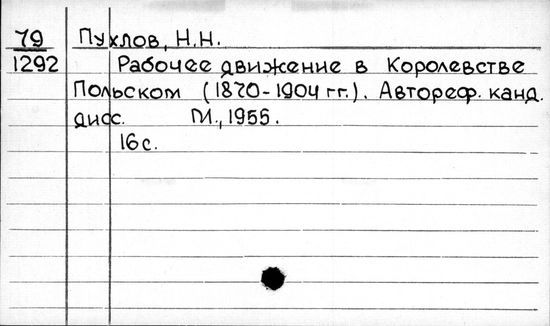 79 Пухлов, Н.Н.
1292 Рабочее движение в Королевстве
Польском (1870-1904 гг.). Автореф. канд.
дисс. М., 1955.
16 с.